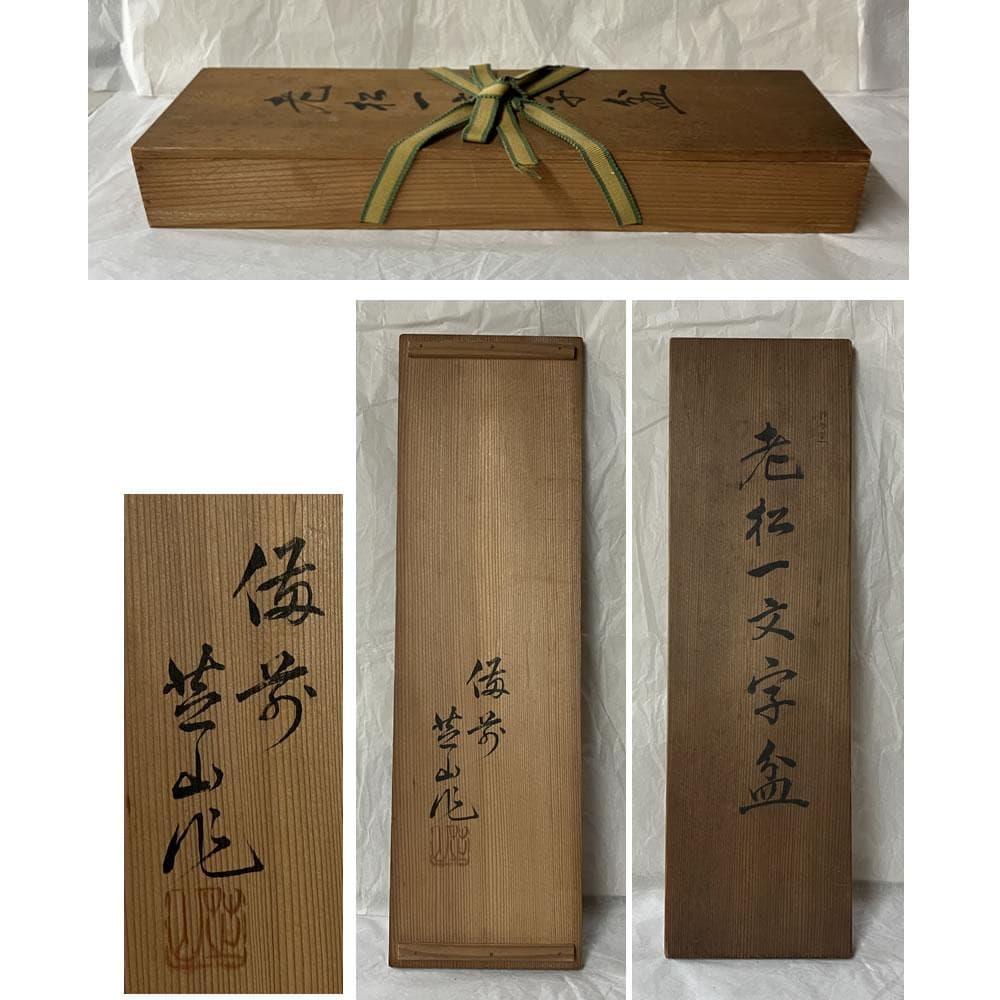 老松一文字盆
備前
芝山作
備前
芝山作
老松一文字盆